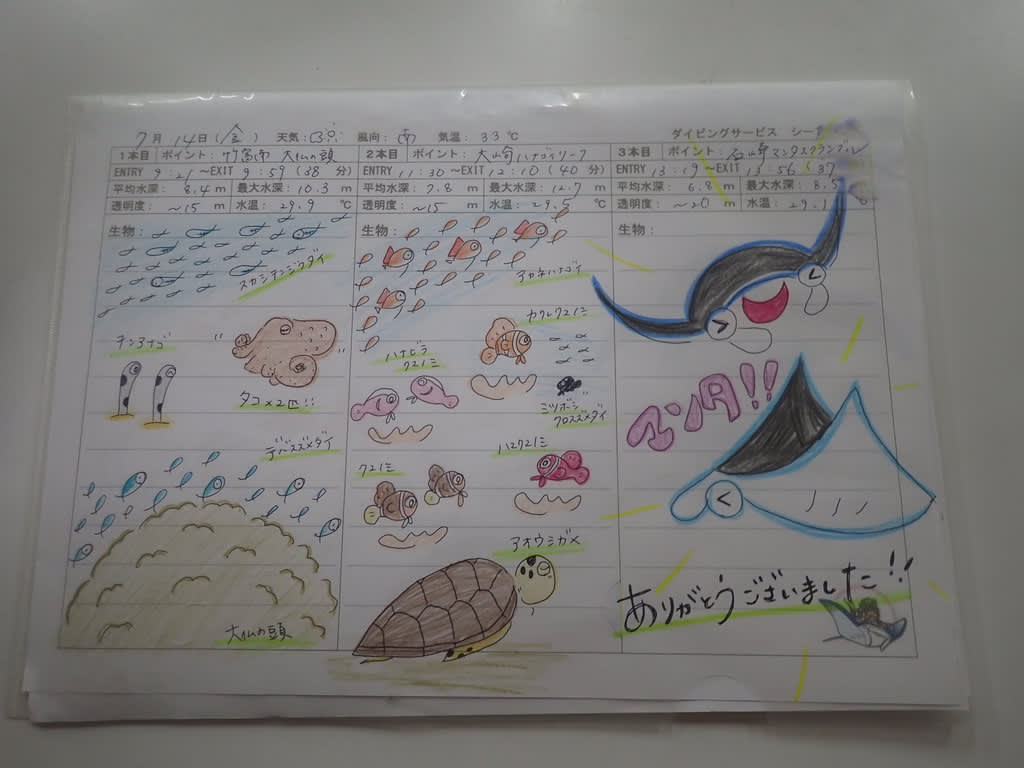 7月 14日(金) 天気: 風向: 南 気温: 33℃
ダイビングサービス シー
1本目 ポイント: 竹富南 大仏の頭
ENTRY 9:21 ～EXIT 9:59 (38 分)
平均水深: 8.4 m 最大水深: 10.3 m
透明度: ～15 m 水温: 29.9 ℃
生物:
スカシテンジクダイ
チンアナゴ
タコ×2匹!!
デバスズメダイ
大仏の頭
2本目 ポイント: 大崎ハナゴイリーフ
ENTRY 11:30 ～EXIT 12:10 (40 分)
平均水深: 7.8 m 最大水深: 12.7 m
透明度: ～15 m 水温: 29.5 ℃
生物:
アカネハナゴイ
カクレクマノミ
ハナビラ
クマノミ
ミツボシ
クロスズメダイ
ハマクマノミ
クマノミ
アオウミガメ
3本目 ポイント: 石崎マンタスクランブル
ENTRY 13:19 ～EXIT 13:56 (37
平均水深: 6.8 m 最大水深: 8.5
透明度: ～20 m 水温: 29.1
生物:
マンタ!!
ありがとうございました!!